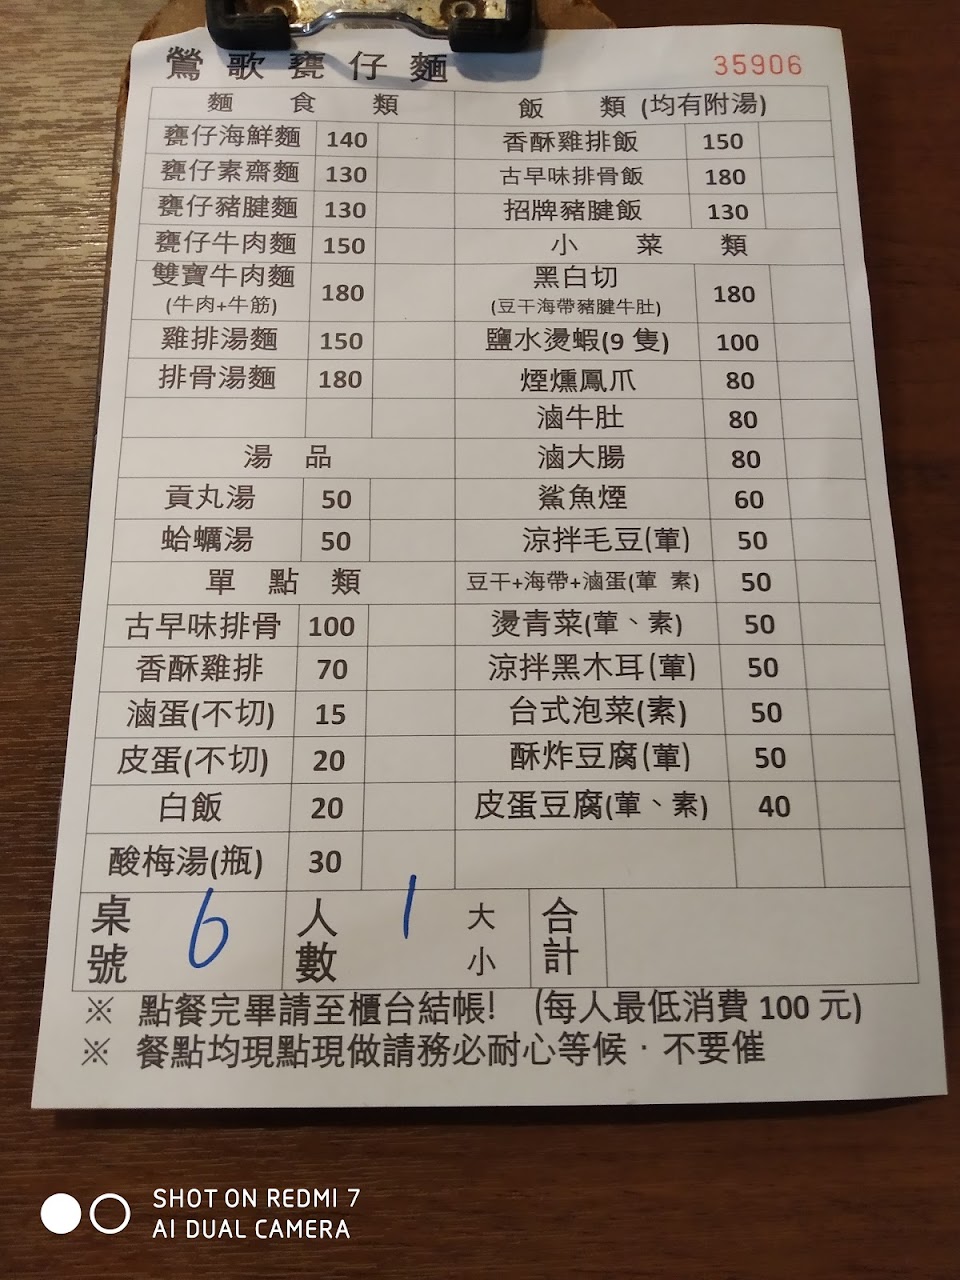 鶯歌甕仔麵 35906
麵食類
甕仔海鮮麵 140
甕仔素齋麵 130
甕仔豬腱麵 130
甕仔牛肉麵 150
雙寶牛肉麵
(牛肉+牛筋) 180
雞排湯麵 150
排骨湯麵 180
湯品
貢丸湯 50
蛤蠣湯 50
單點類
古早味排骨 100
香酥雞排 70
滷蛋(不切) 15
皮蛋(不切) 20
白飯 20
酸梅湯(瓶) 30
飯類(均有附湯)
香酥雞排飯 150
古早味排骨飯 180
招牌豬腱飯 130
小菜類
黑白切
(豆干海帶豬腱牛肚) 180
鹽水燙蝦(9 隻) 100
煙燻鳳爪 80
滷牛肚 80
滷大腸 80
鯊魚煙 60
涼拌毛豆(葷) 50
豆干+海帶+滷蛋(葷 素) 50
燙青菜(葷、素) 50
涼拌黑木耳(葷) 50
台式泡菜(素) 50
酥炸豆腐(葷) 50
皮蛋豆腐(葷、素) 40
桌號 6 人數 1 大 小 合計
※ 點餐完畢請至櫃台結帳! (每人最低消費 100 元)
※ 餐點均現點現做請務必耐心等候．不要催
SHOT ON REDMI 7
AI DUAL CAMERA